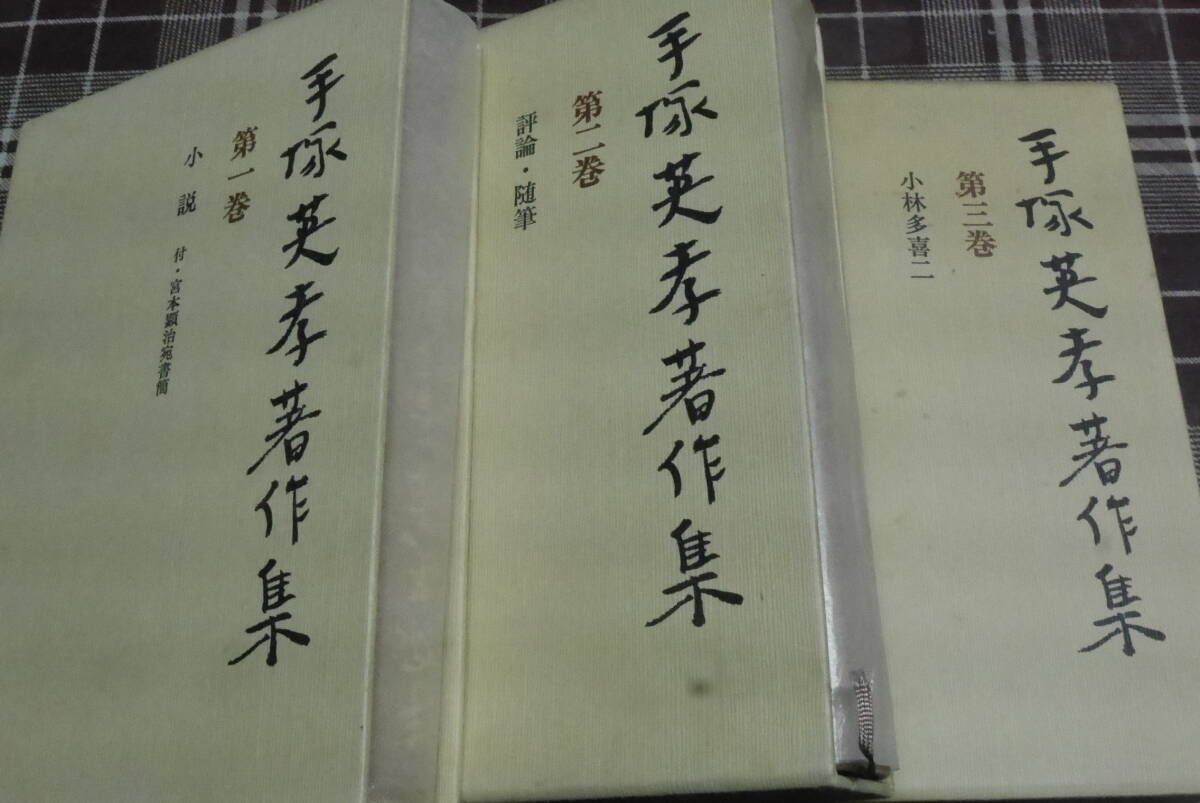 手塚英孝著作集
第一巻
小説 付・宮本顕治宛書簡
手塚英孝著作集
第二巻
評論・随筆
手塚英孝著作集
第三巻
小林多喜二